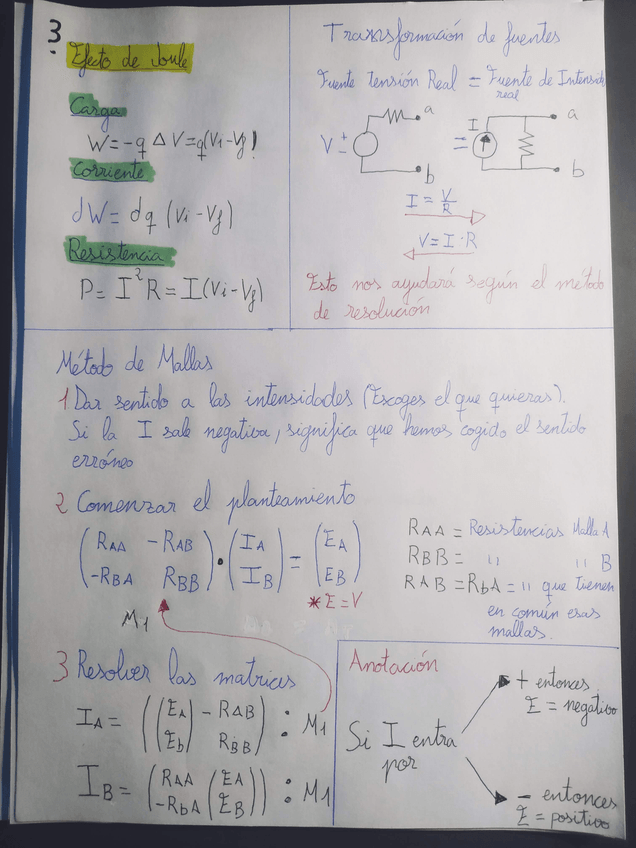 3.
Efecto de Joule
Carga
W = -q ΔV = q(Vi - Vf)
Corriente
dW = dq (Vi - Vf)
Resistencia
P = I² R = I(Vi - Vf)
Transformación de fuentes
Fuente tensión Real = Fuente de Intensid
real
V + - a b = I a b
I = V/R
V = I · R
Esto nos ayudará según el método
de resolución
Método de Mallas
1 Dar sentido a las intensidades (Escoges el que quieras).
Si la I sale negativa, significa que hemos cogido el sentido
erróneo
2 Comenzar el planteamiento
(RAA -RAB) · (IA) = (EA)
(-RBA RBB) (IB) (EB)
* E = V
M1
RAA = Resistencias Malla A
RBB = " " B
RAB = RbA = " que tienen
en común esas
mallas.
3 Resolver las matrices
IA = ((EA) - RAB) : M1
((Eb) RBB)
IB = (RAA (EA)) : M1
(-RbA (EB))
Anotación
Si I entra
por
+ entonces
E = negativo
- entonces
E = positivo